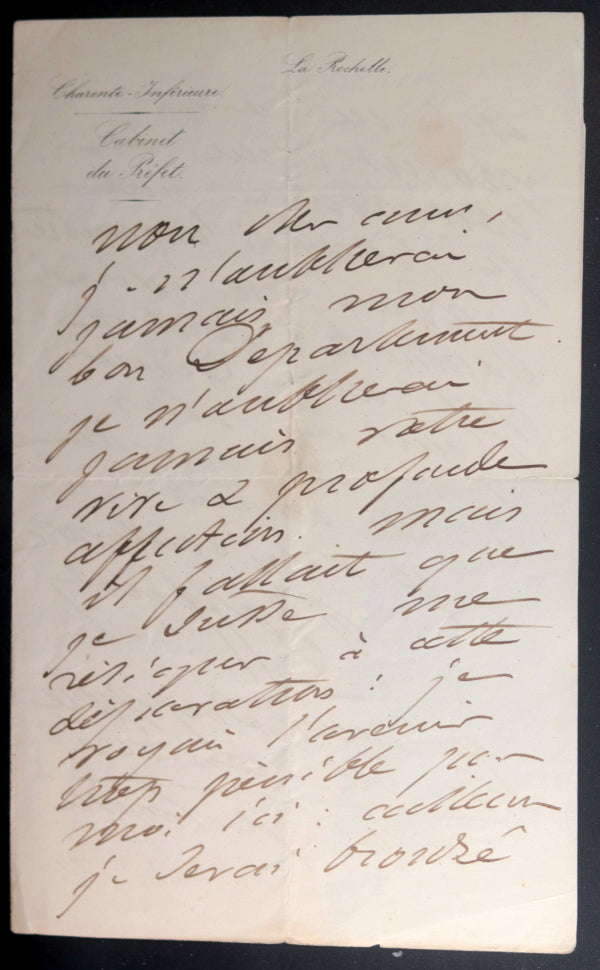 La Rochelle,
Charente-Inférieure
Cabinet
du Préfet.
mon cher ami,
je n'oublierai
jamais mon
bon Département.
je n'oublierai
jamais votre
vive & profonde
affection. mais
il fallait que
je susse me
résigner à cette
séparation : je
voyais l'avenir
trop pénible pour
moi ici : ailleurs
je serai bronzé